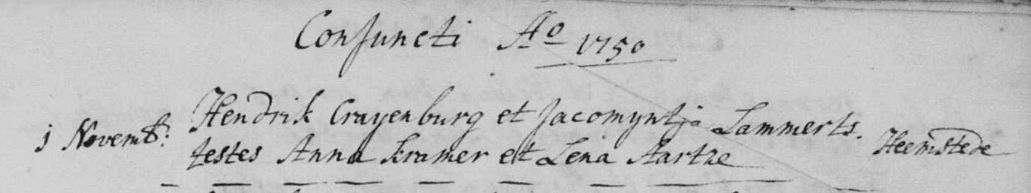 Conjuncti Aº 1750
1 Novembr: Hendrik Crayenburg et Jacomyntje Lammerts. Heemstede
testes Anna Kramer et Lena Aartze